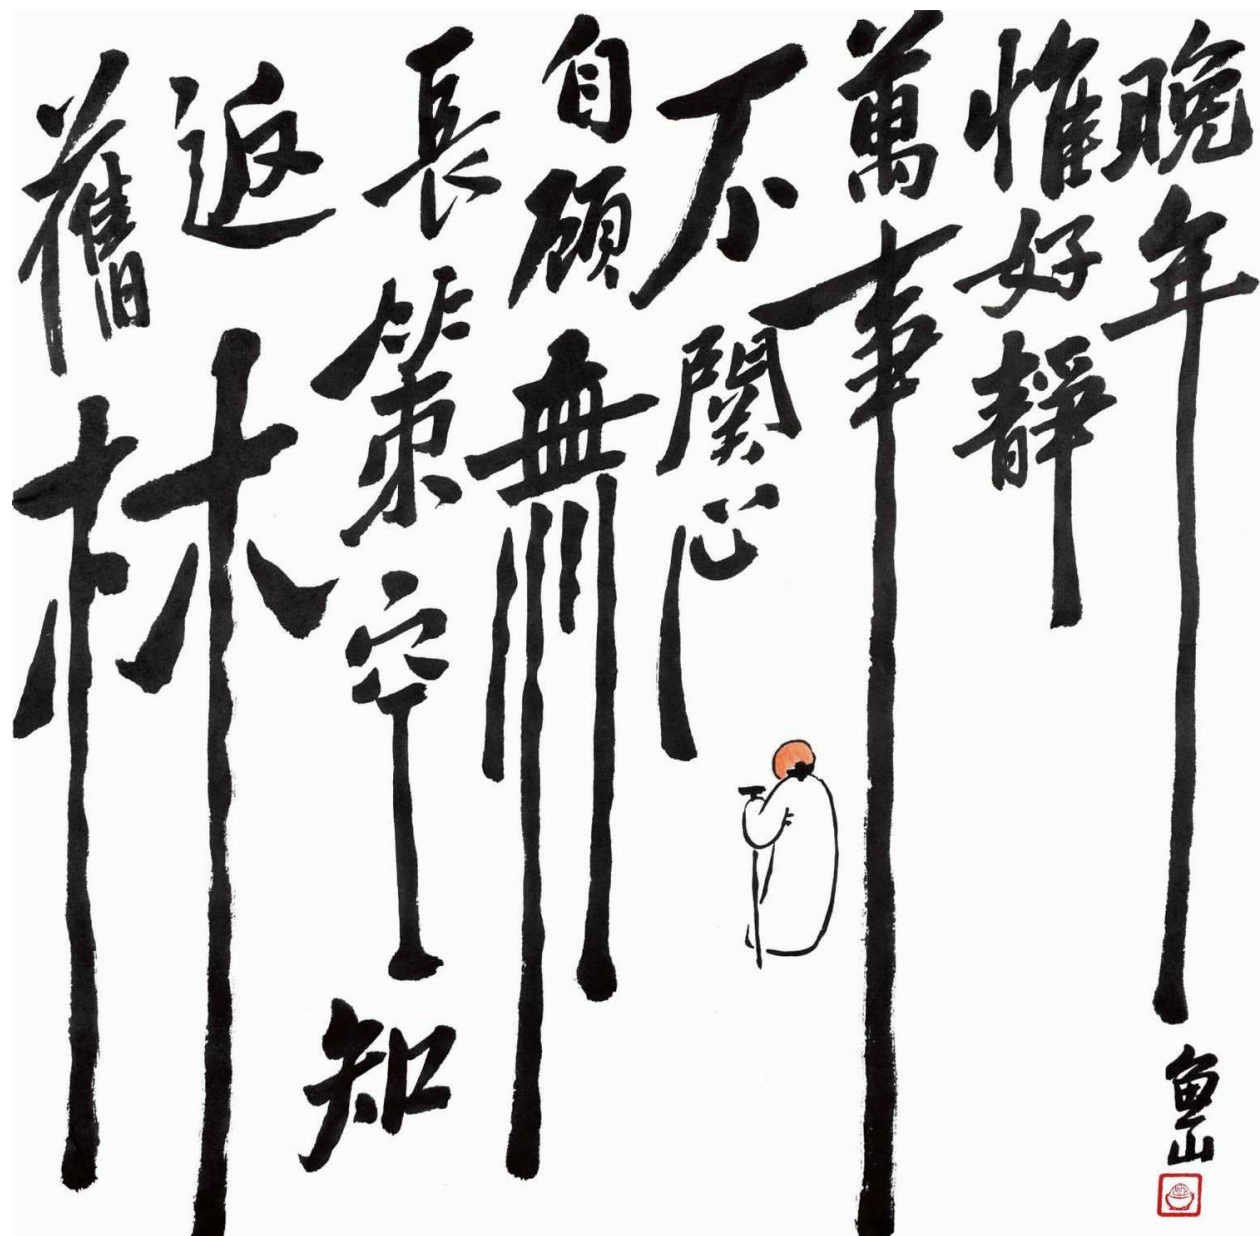 晚年
惟好靜
萬事
不關心
自顧無
長策空知
返
舊林
魚山